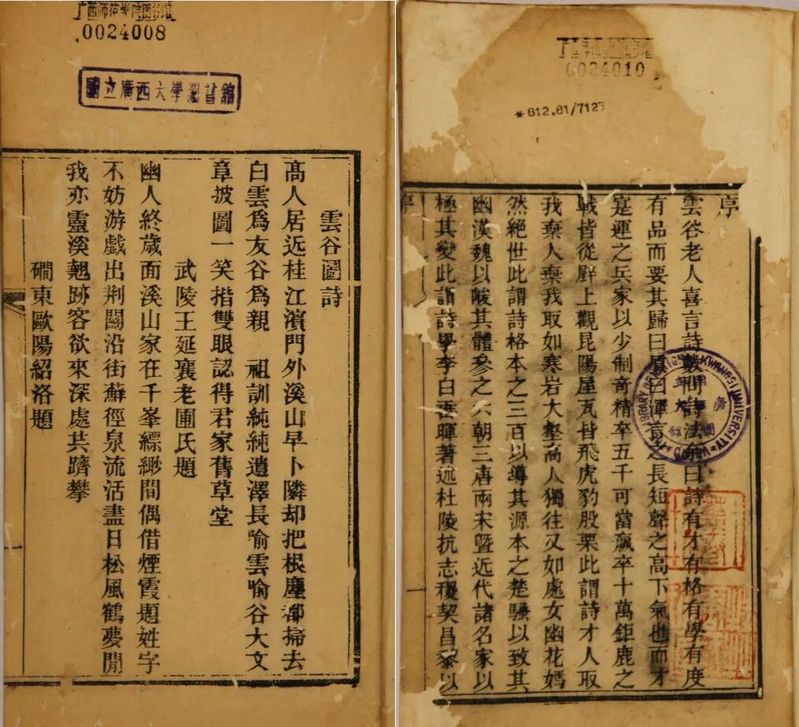 0024008
國立廣西大學圖書館
雲谷圖詩
高人居近桂江濱門外溪山早卜隣却把根塵都掃去
白雲爲友谷爲親 祖訓純純遺澤長喻雲喻谷大文
章披圖一笑指雙眼認得君家舊草堂
武陵王延襄老圃氏題
幽人終歲面溪山家在千峯縹緲間偶借煙霞題姓字
不妨游戲出荆關沿街蘚徑泉流活盡日松風鶴夢閒
我亦靈溪跡客欲來深處共躋攀
磵東歐陽紹洛題
0024010
*812.81/7125
序
雲谷老人喜言詩數問詩法余曰詩有才有格有學有度
有品而要其歸曰曰渾言之長短聲之高下氣也而才
寔運之兵家以少制奇精卒五千可當羸卒十萬鉅鹿之
戰皆從壁上觀昆陽屋瓦皆飛虎豹股栗此謂詩才人取
我棄人棄我取如寒岩大壑高人獨往又如處女幽花嫣
然絶世此謂詩格本之三百以導其源本之楚騷以致其
幽漢魏以峻其體參之六朝三唐兩宋暨近代諸名家以
極其變此謂詩學李白暉著述杜陵抗志稷契昌黎以
序
一